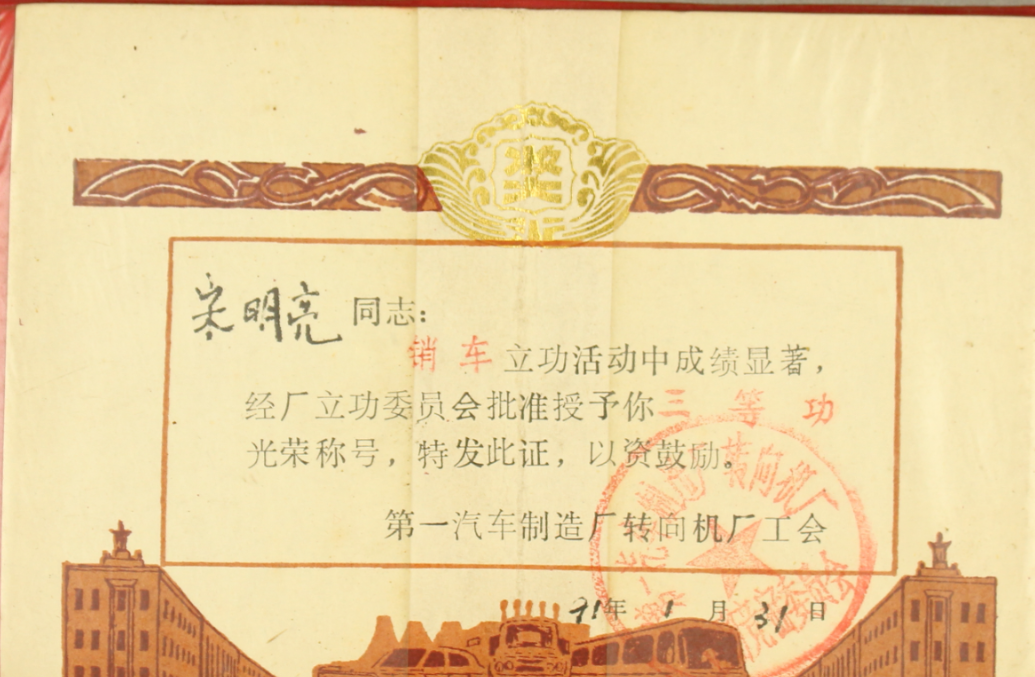 奖
宋明亮 同志：
销车立功活动中成绩显著，
经厂立功委员会批准授予你三等功
光荣称号，特发此证，以资鼓励。
第一汽车制造厂转向机厂工会
91年1月31日
转向机厂